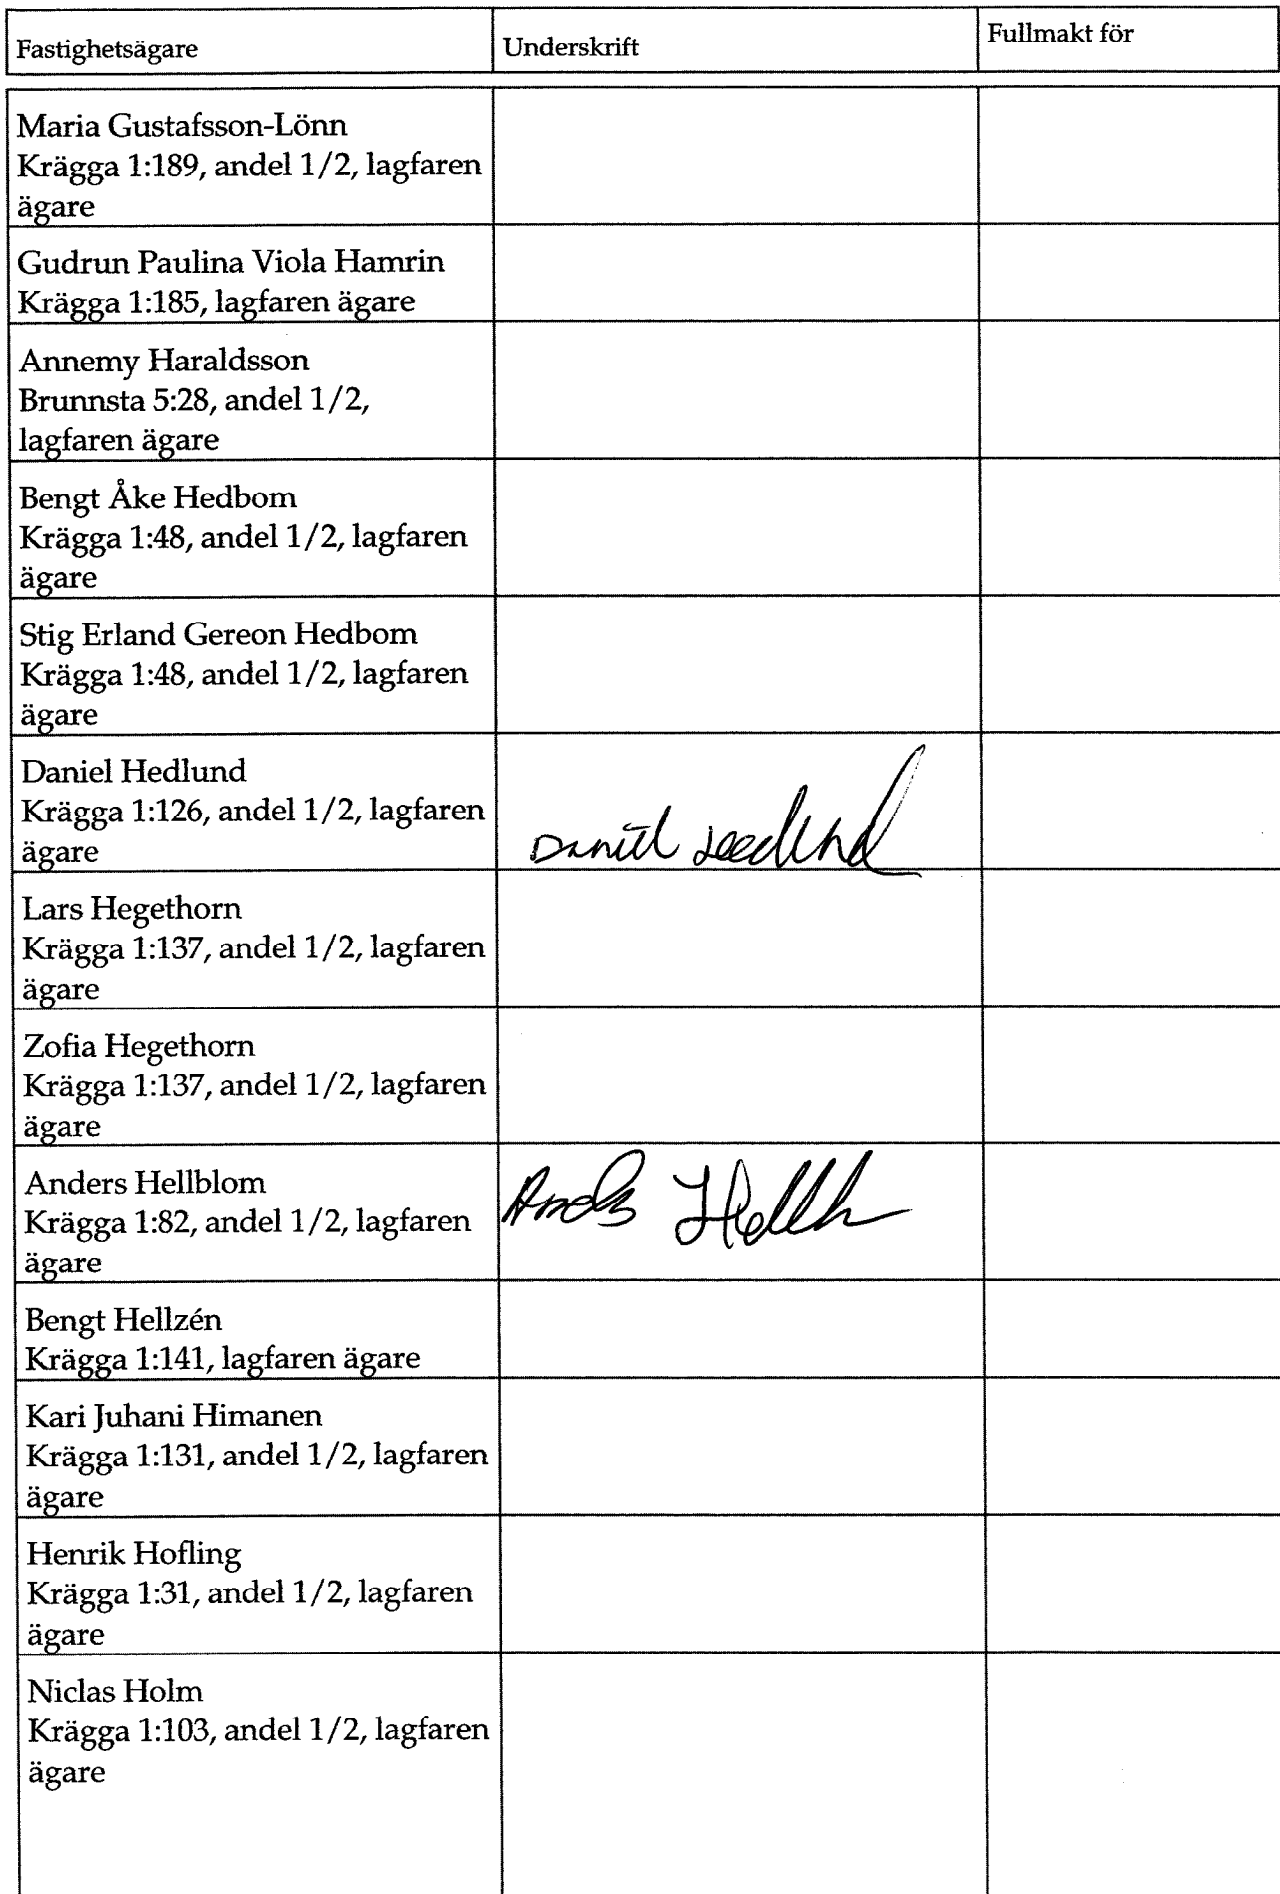 Fastighetsägare
Underskrift
Fullmakt för
Maria Gustafsson-Lönn
Krägga 1:189, andel 1/2, lagfaren
ägare
Gudrun Paulina Viola Hamrin
Krägga 1:185, lagfaren ägare
Annemy Haraldsson
Brunnsta 5:28, andel 1/2,
lagfaren ägare
Bengt Åke Hedbom
Krägga 1:48, andel 1/2, lagfaren
ägare
Stig Erland Gereon Hedbom
Krägga 1:48, andel 1/2, lagfaren
ägare
Daniel Hedlund
Krägga 1:126, andel 1/2, lagfaren
ägare
Daniel Hedlund
Lars Hegethorn
Krägga 1:137, andel 1/2, lagfaren
ägare
Zofia Hegethorn
Krägga 1:137, andel 1/2, lagfaren
ägare
Anders Hellblom
Krägga 1:82, andel 1/2, lagfaren
ägare
Bengt Hellzén
Krägga 1:141, lagfaren ägare
Kari Juhani Himanen
Krägga 1:131, andel 1/2, lagfaren
ägare
Henrik Hofling
Krägga 1:31, andel 1/2, lagfaren
ägare
Niclas Holm
Krägga 1:103, andel 1/2, lagfaren
ägare